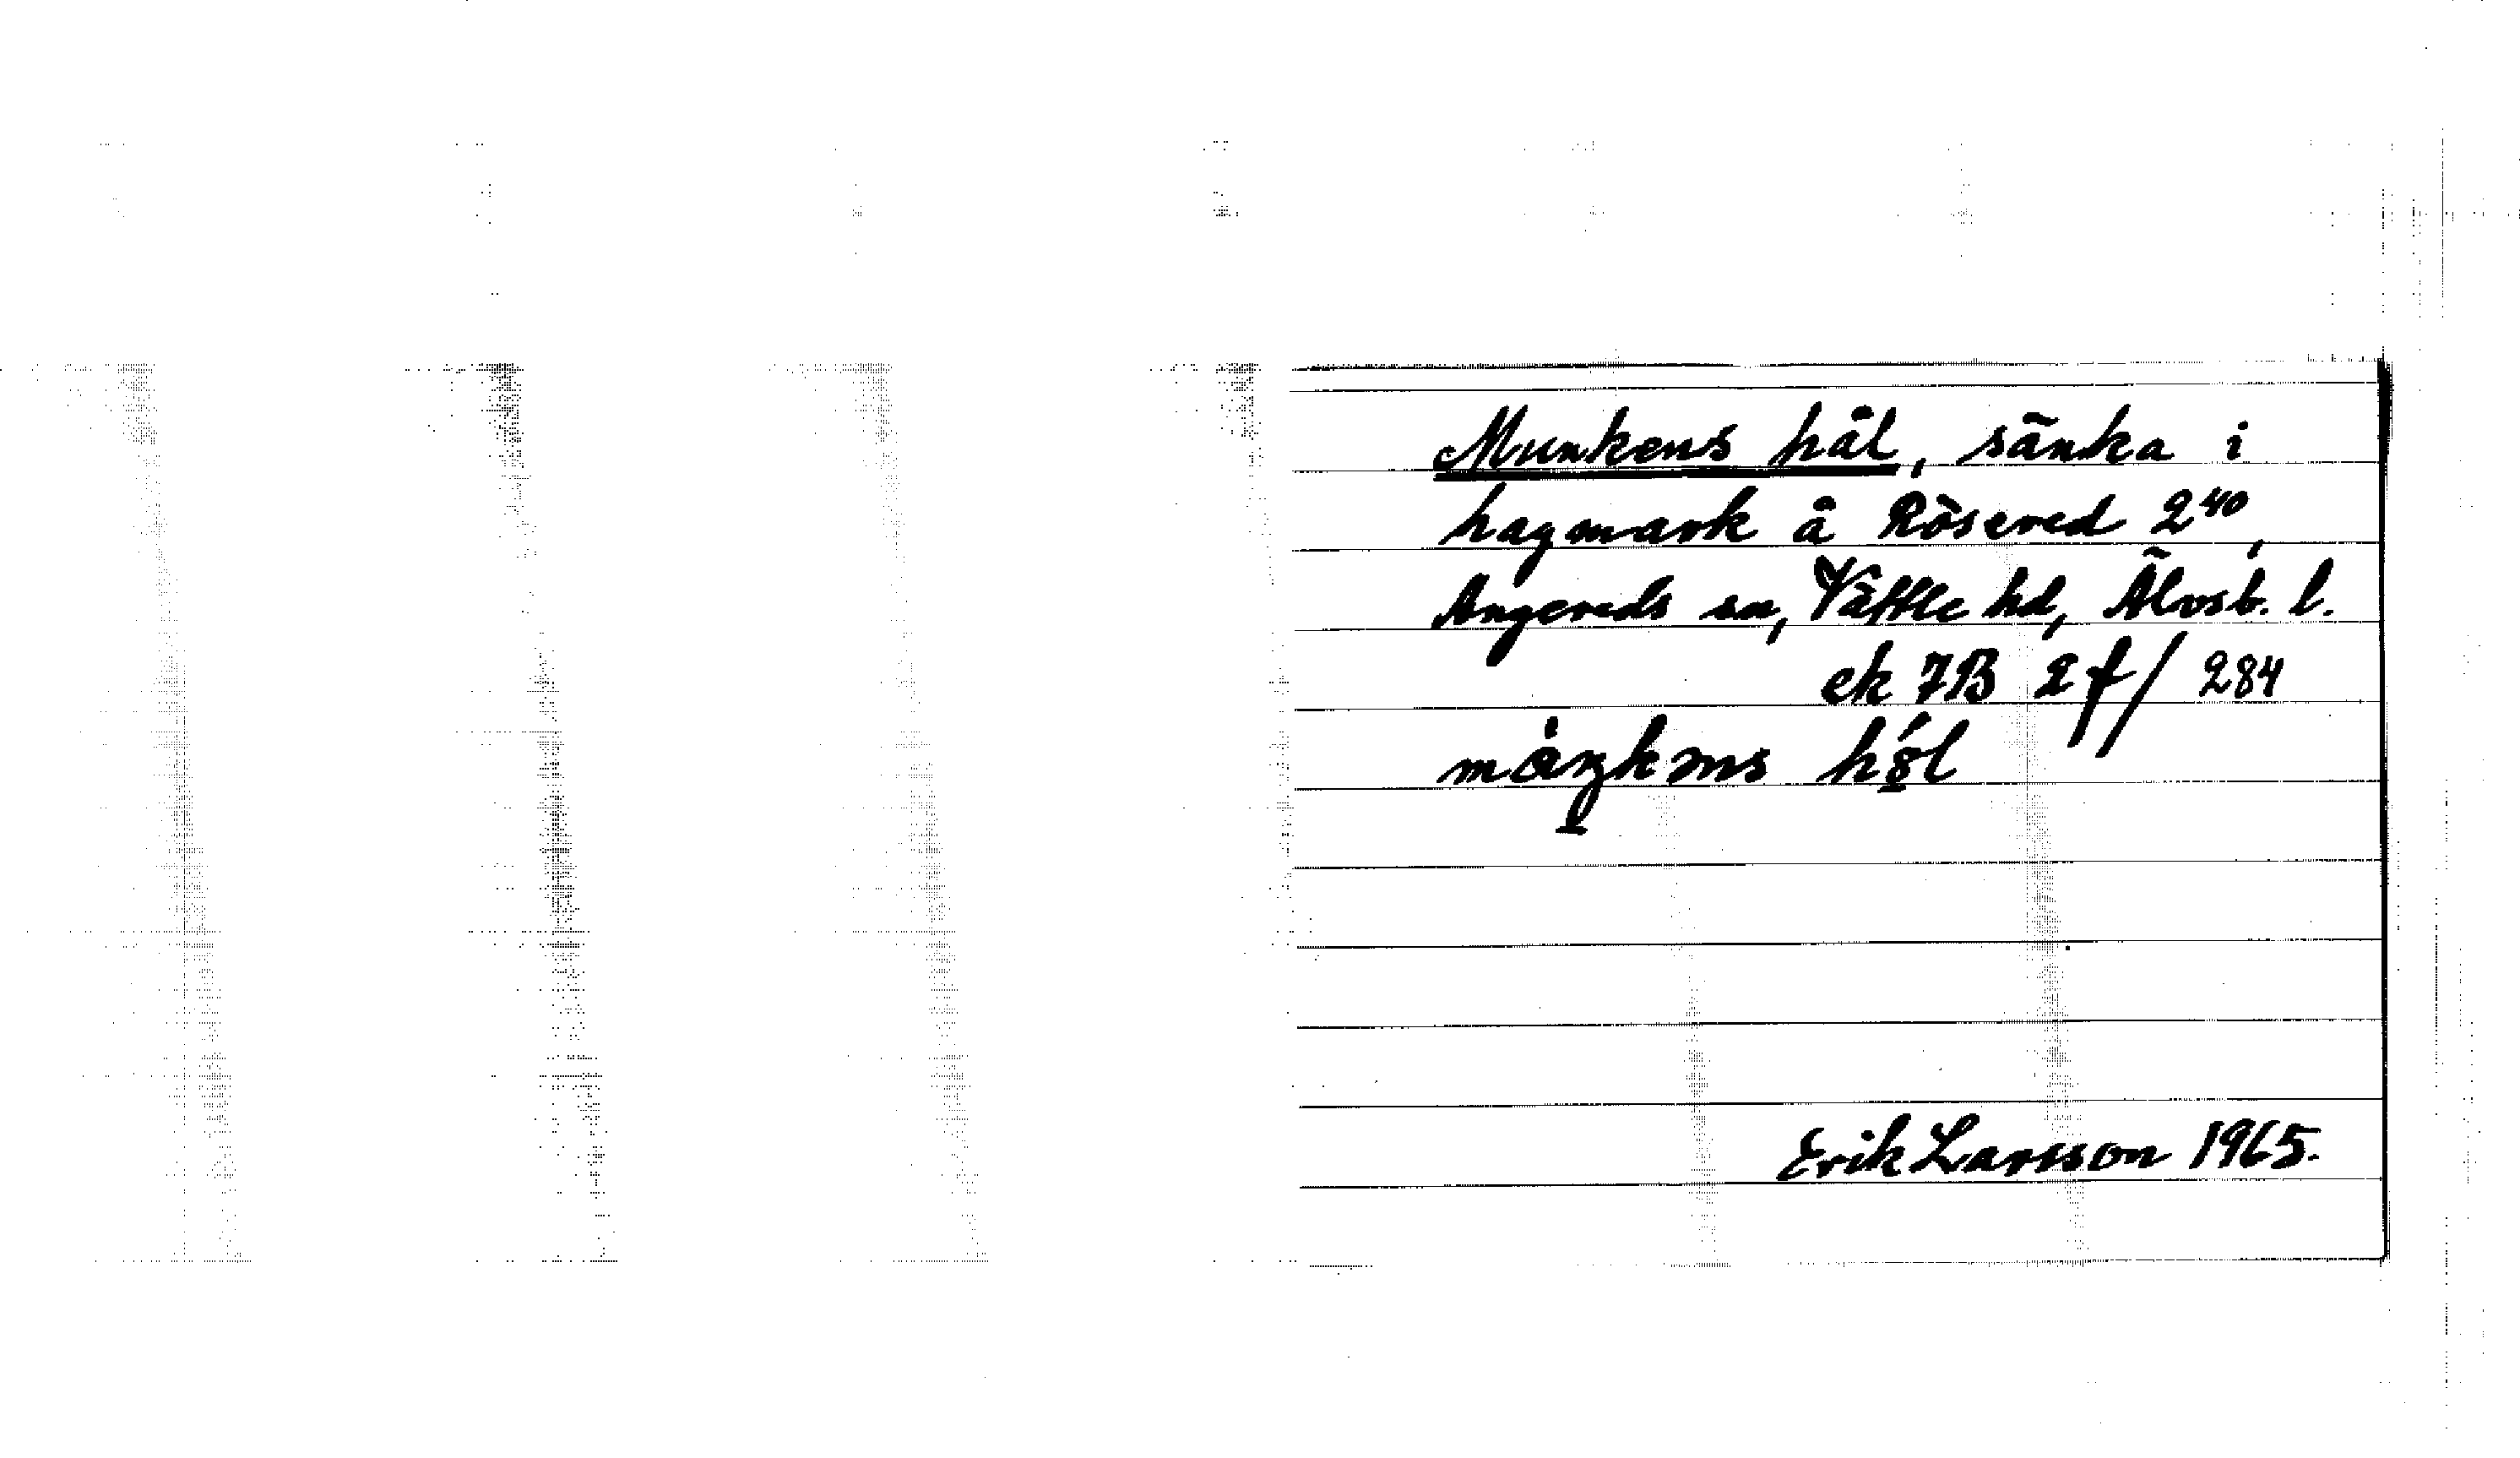 Munkens hål, sänka i
hagmark å Rösered 2⁴⁰,
Angereds sn, Vättle hd, Älvsb. l.
ek 7B 2f/284
Erik Larsson 1965.